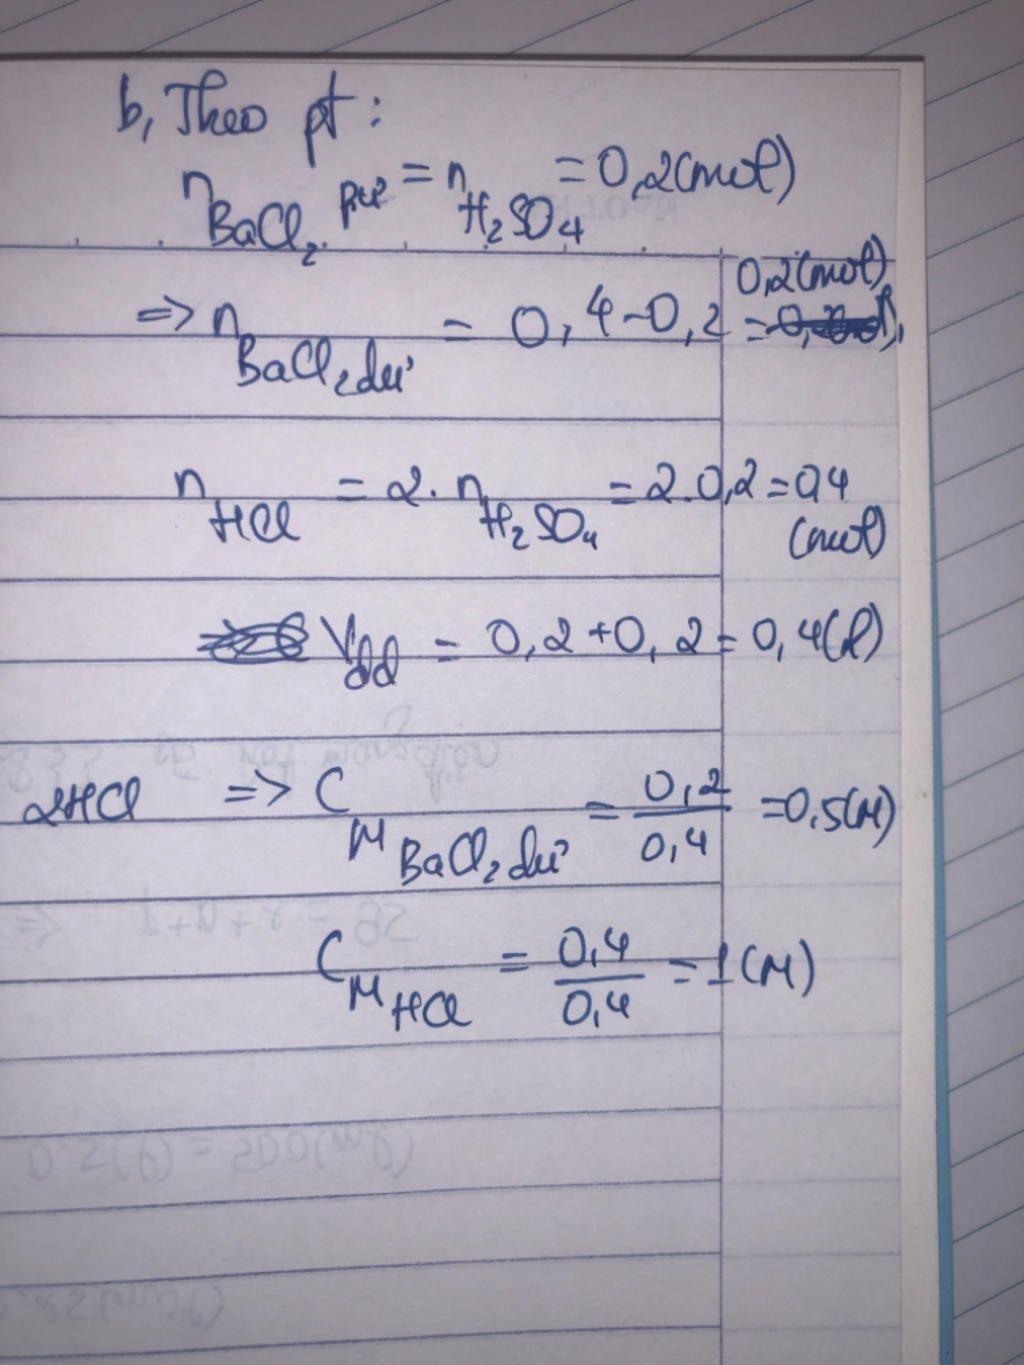 b, Theo pt:
n BaCl₂ pư = n H₂SO₄ = 0,2(mol)
=> n BaCl₂ dư = 0,4-0,2 = 0,2(mol)
n HCl = 2. n H₂SO₄ = 2.0,2 = 0,4 (mol)
Vdd = 0,2+0,2 = 0,4(l)
2HCl => C M BaCl₂ dư = 0,2/0,4 = 0,5(M)
C M HCl = 0,4/0,4 = 1(M)